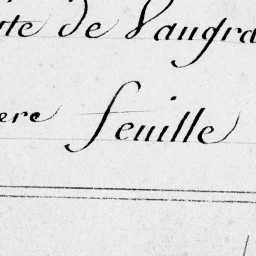 te de Vaugra
ere feuille